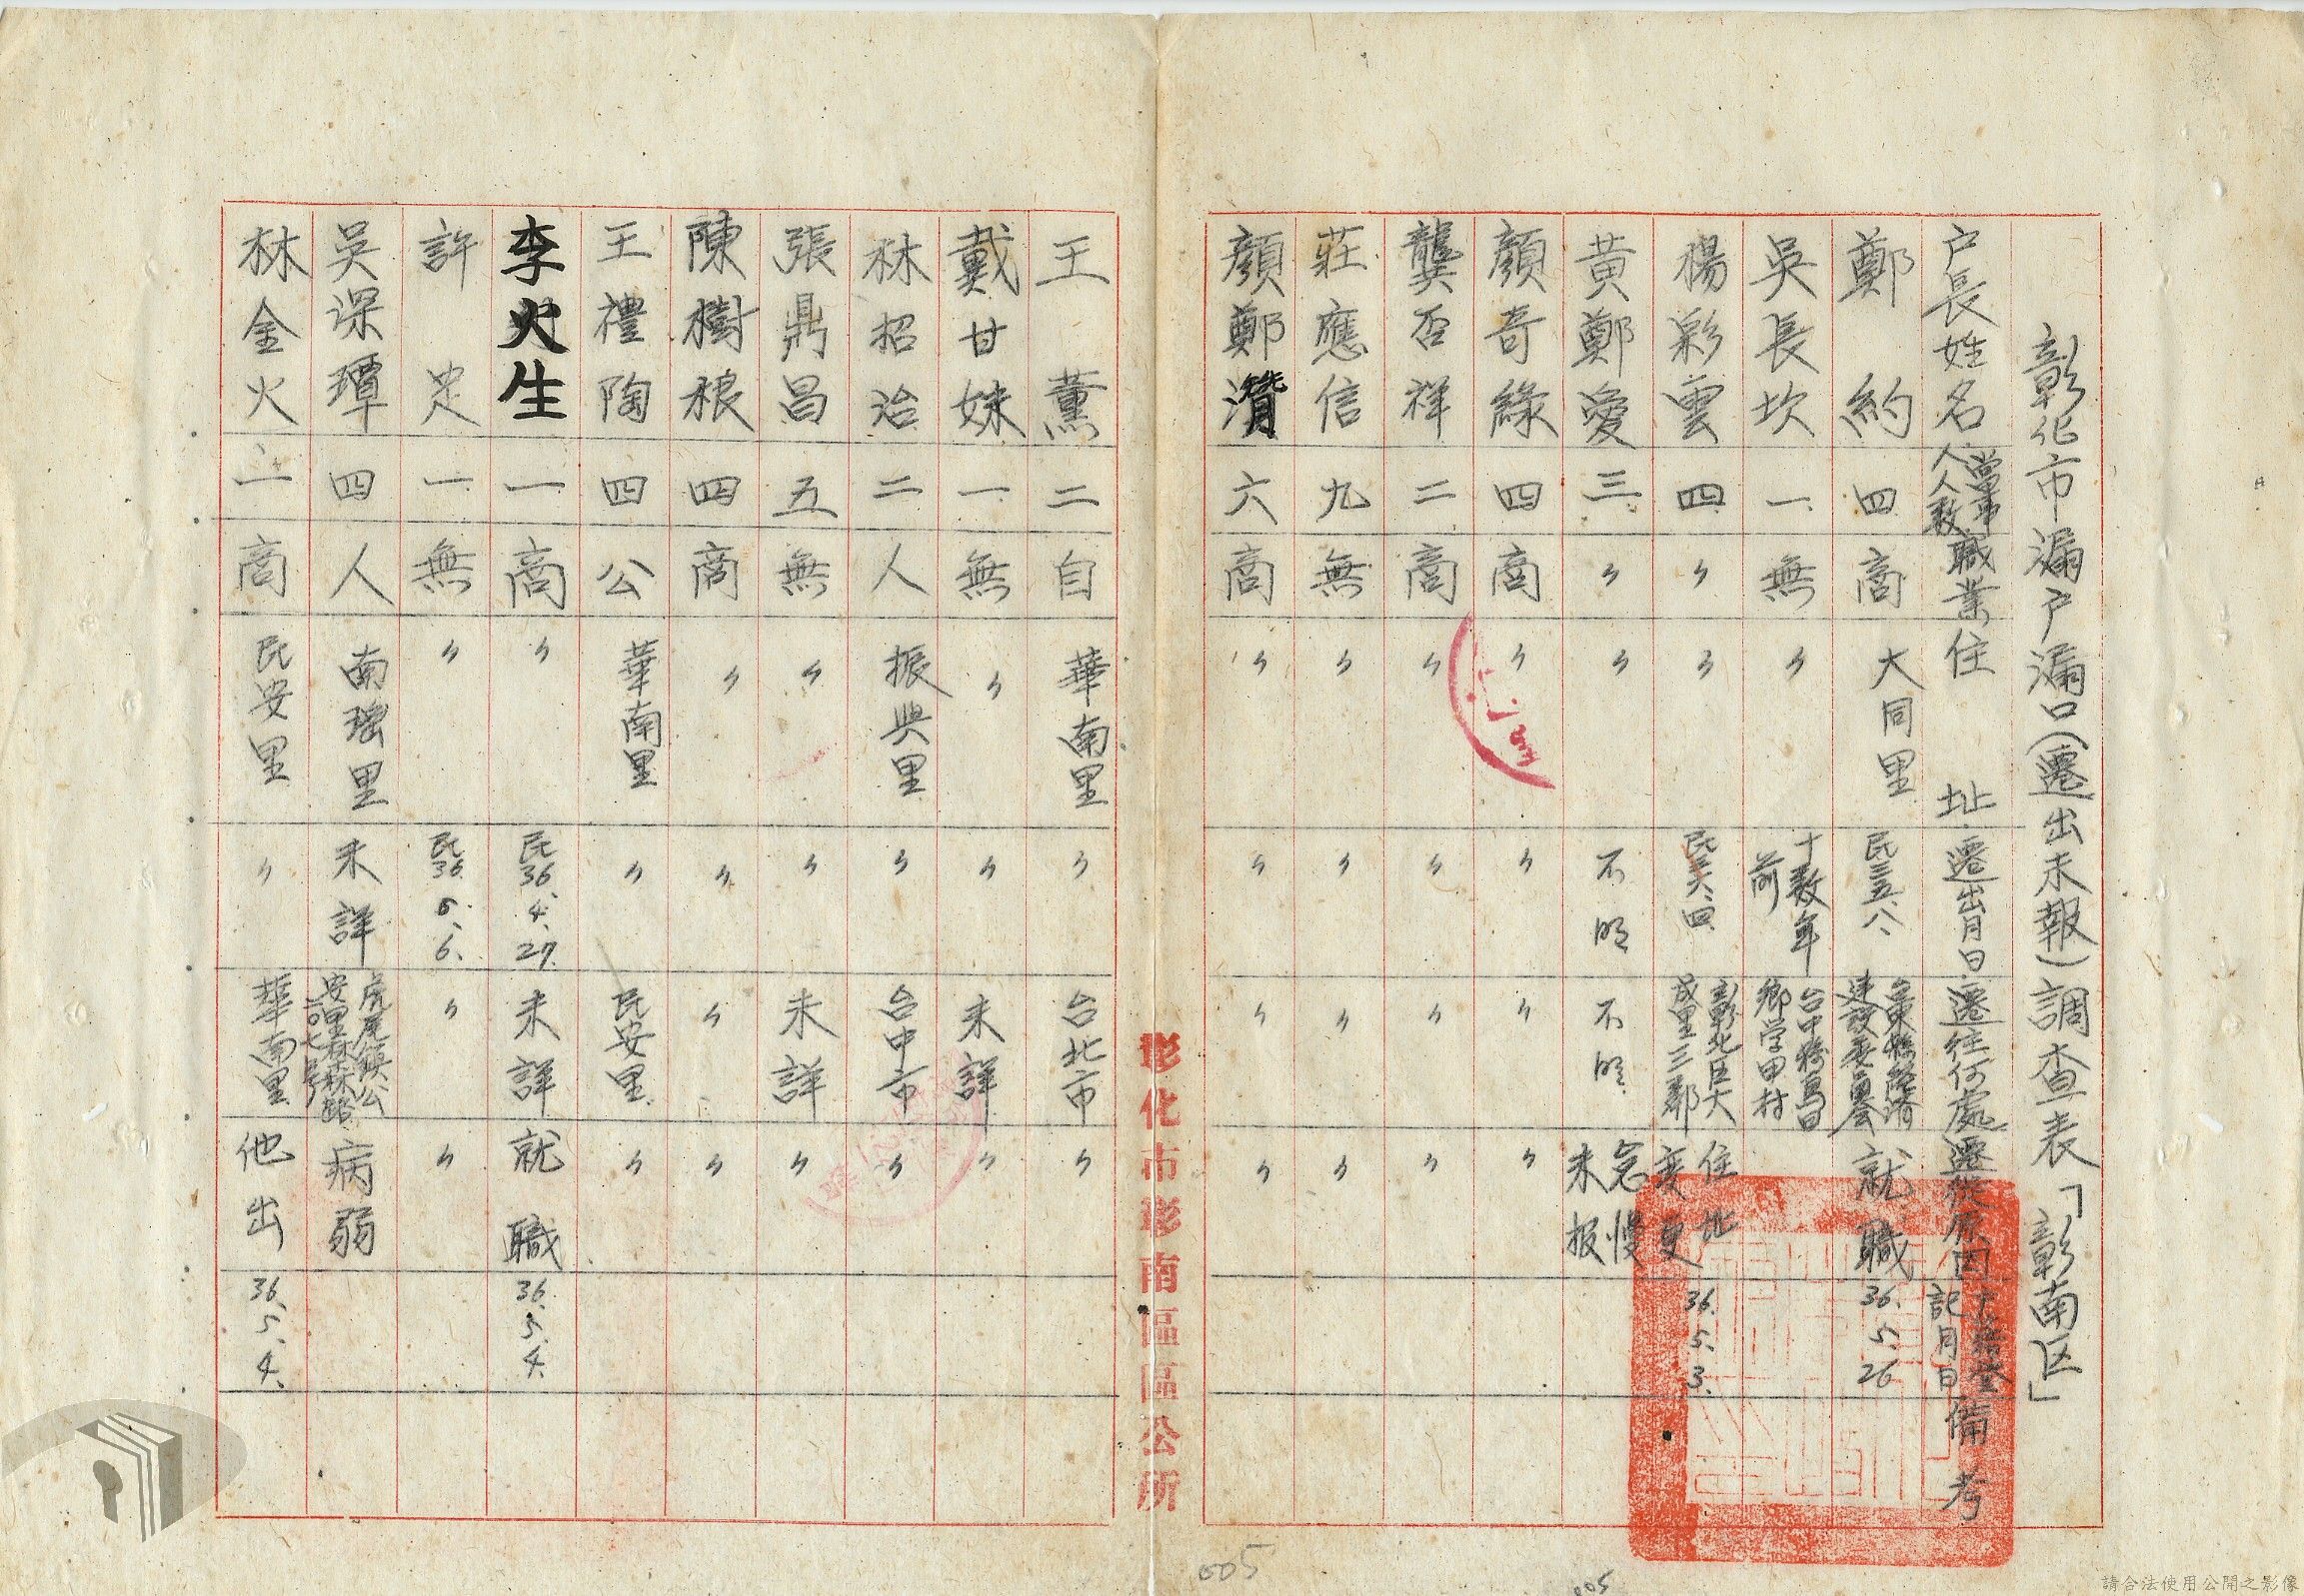 彰化市漏户漏口(遷出未報)調查表「彰南区」
户長姓名 當事人人数 職業 住址 遷出月日 遷往何處 遷徙原因 户籍登記月日 備考
鄭約 四 商 大同里 民三五、八、 台東縣經済建設委員会 就職 36.5.26
吳長坎 一 無 〃 十数年前 台中縣烏日鄉学甲村
楊彩雲 四 〃 〃 民三六、四 彰化区大成里三鄰 住址変更 36.5.3.
黄鄭愛 三 〃 〃 不明 不明 怠慢未报
顏奇綠 四 商 〃 〃 〃 〃
龔否祥 二 商 〃 〃 〃 〃
莊應信 九 無 〃 〃 〃 〃
顏鄭 六 商 〃 〃 〃 〃
彰化市彰南區區公所
王薰 二 自 華南里 〃 台北市 〃
戴甘妹 一 無 〃 〃 未詳 〃
林招治 二 人 振興里 〃 台中市 〃
張鼎昌 五 無 〃 〃 未詳 〃
陳樹根 四 商 〃 〃 〃 〃
王禮陶 四 公 華南里 〃 民安里 〃
李火生 一 商 〃 民36.4.27. 未詳 就職 36.5.4.
許 一 無 〃 民36.5.6. 〃 〃
吳深璋 四 人 南瑤里 未詳 虎尾鎮公安里森林路 病弱
林金火 二 商 民安里 〃 華南里 他出 36.5.4.
005
005
請合法使用公開之影像